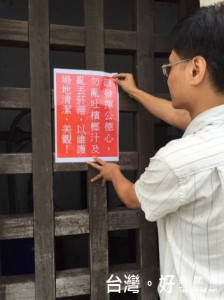 請發揮公德心，
勿亂吐檳榔汁及
亂丟菸蒂，以維護
場地清潔、美觀！
台灣。好